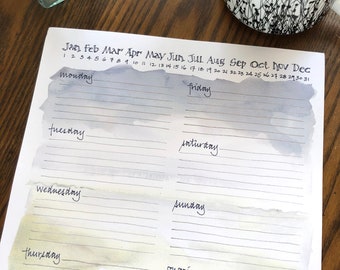 Jan Feb Mar Apr May Jun Jul Aug Sep Oct Nov Dec
1 2 3 4 5 6 7 8 9 10 11 12 13 14 15 16 17 18 19 20 21 22 23 24 25 26 27 28 29 30 31
monday
friday
tuesday
saturday
wednesday
sunday
thursday